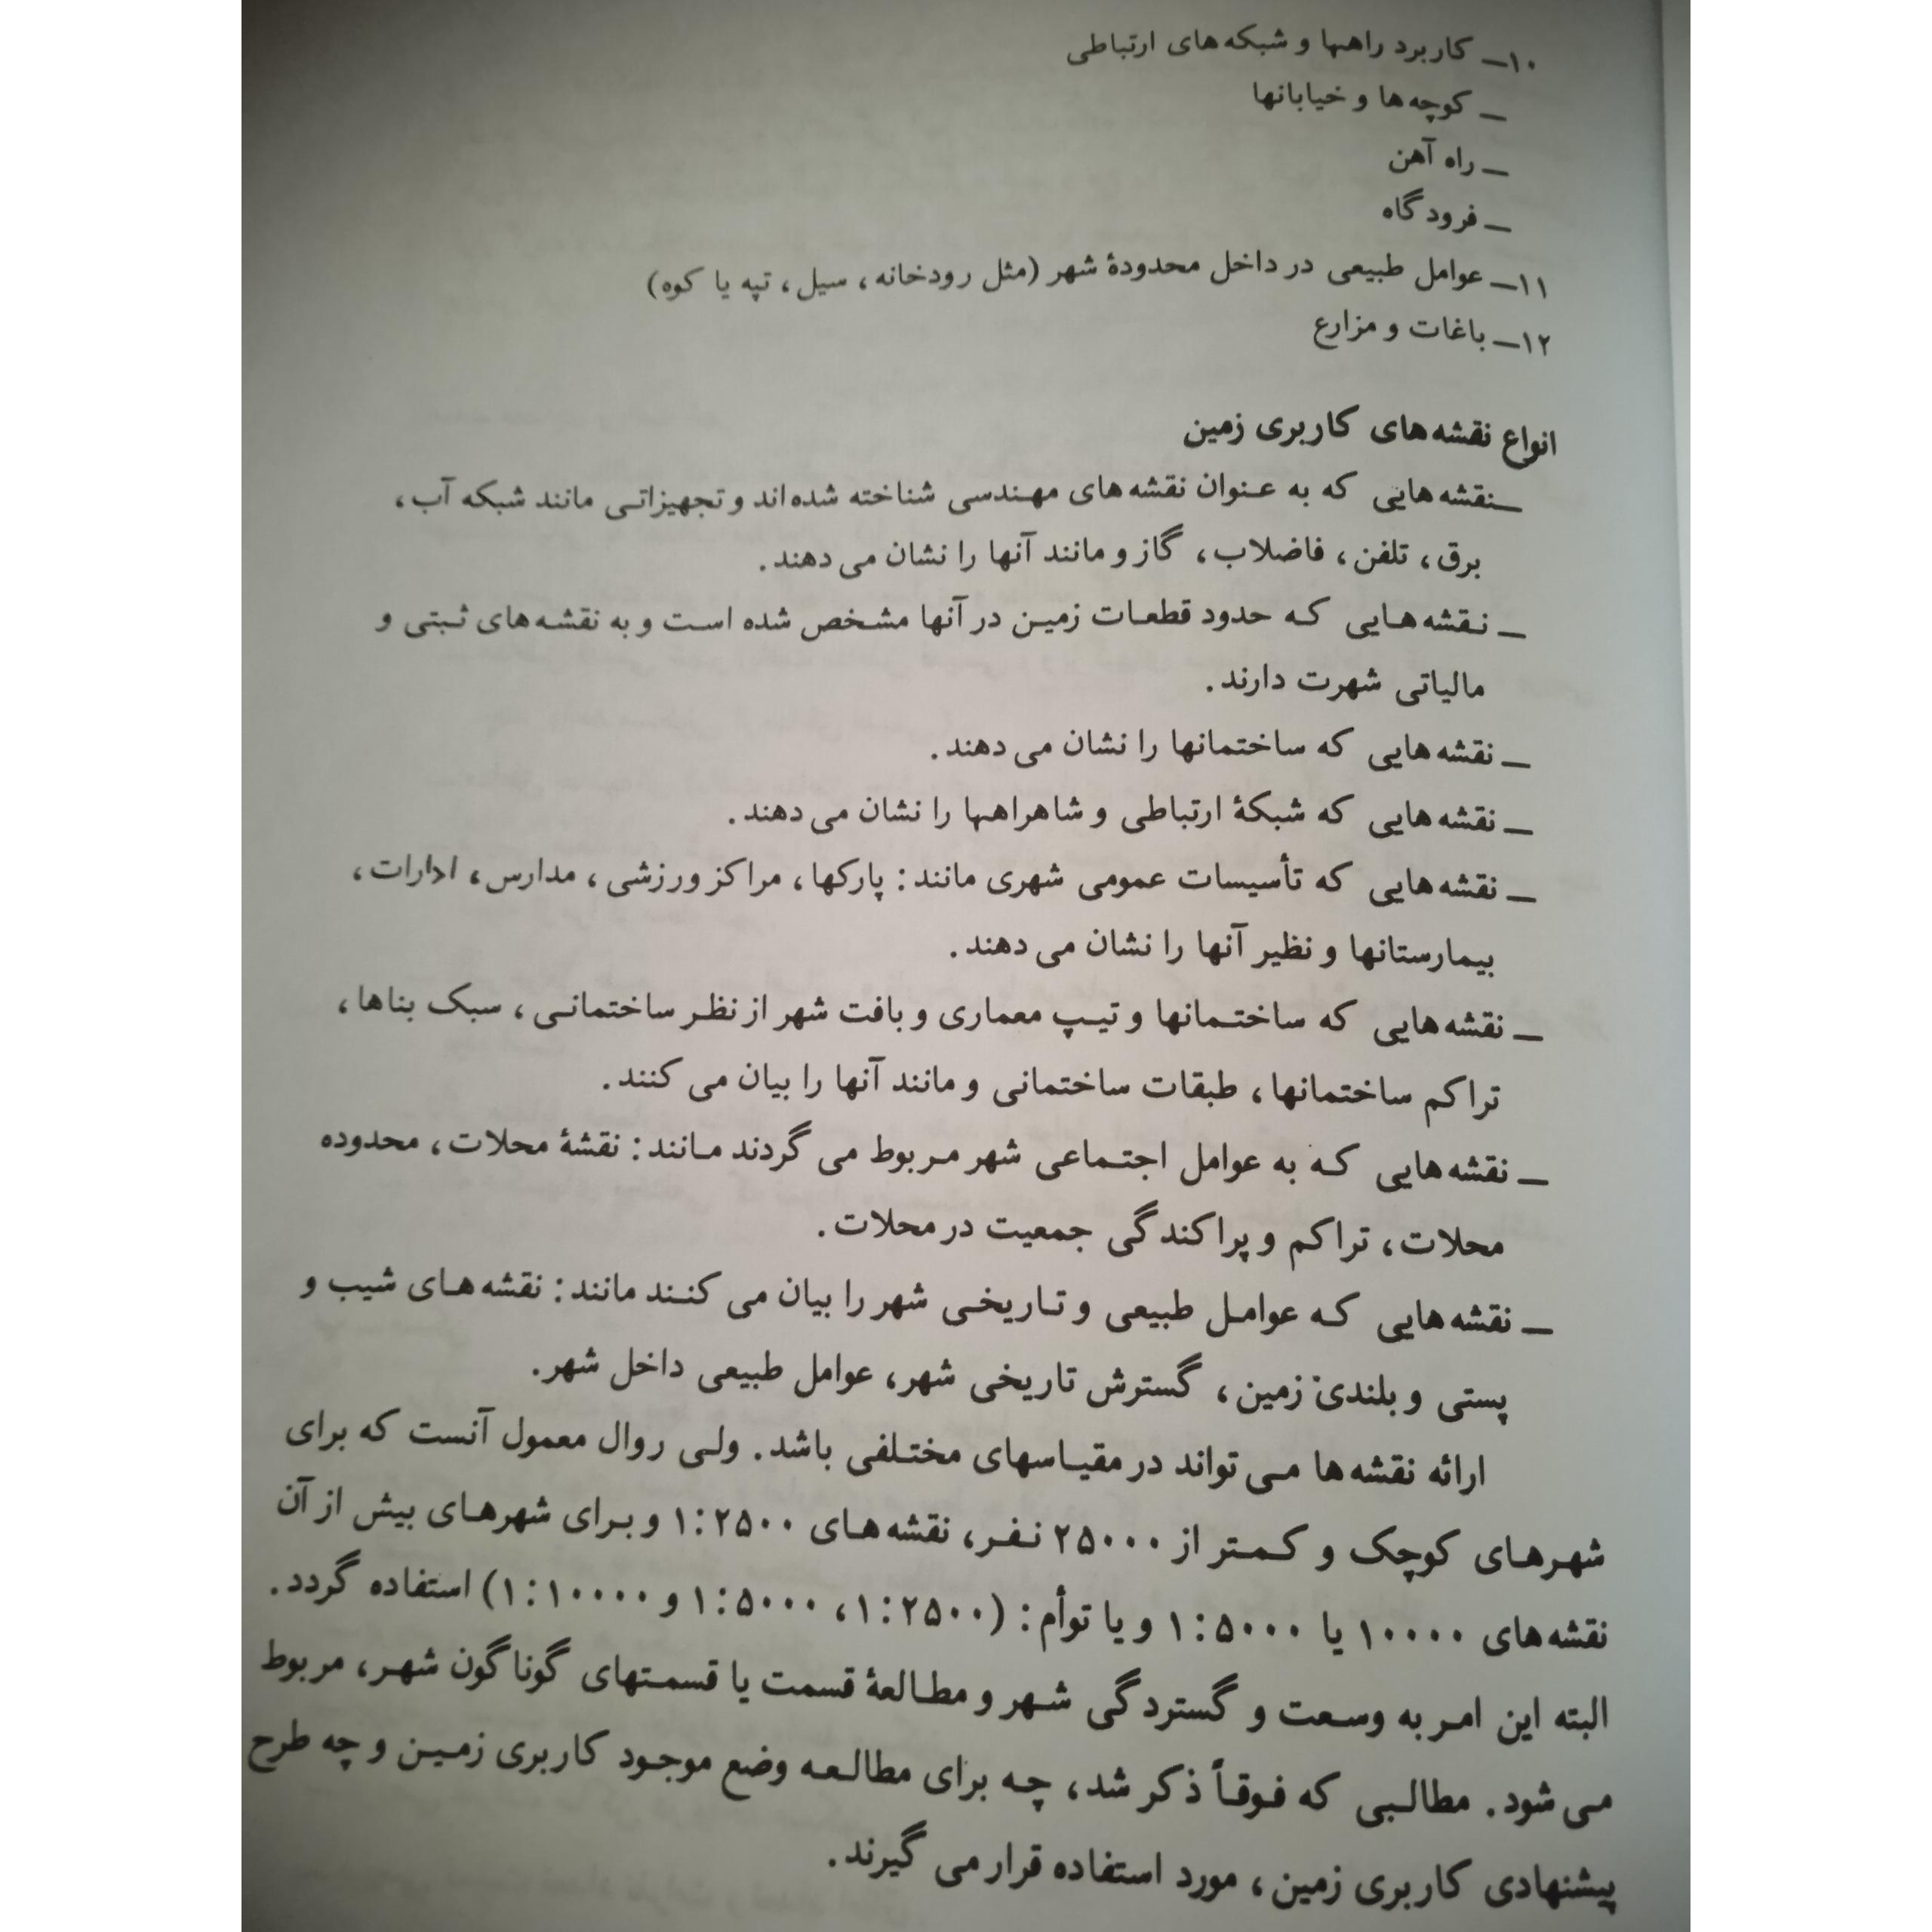 ۱۰ــ کاربرد راهها و شبکه‌های ارتباطی
ــ کوچه‌ها و خیابانها
ــ راه آهن
ــ فرودگاه
۱۱ــ عوامل طبیعی در داخل محدودهٔ شهر (مثل رودخانه، سیل، تپه یا کوه)
۱۲ــ باغات و مزارع
انواع نقشه‌های کاربری زمین
ــ نقشه‌هایی که به عنوان نقشه‌های مهندسی شناخته شده‌اند و تجهیزاتی مانند شبکه آب،
برق، تلفن، فاضلاب، گاز و مانند آنها را نشان می‌دهند.
ــ نقشه‌هایی که حدود قطعات زمین در آنها مشخص شده است و به نقشه‌های ثبتی و
مالیاتی شهرت دارند.
ــ نقشه‌هایی که ساختمانها را نشان می‌دهند.
ــ نقشه‌هایی که شبکهٔ ارتباطی و شاهراهها را نشان می‌دهند.
ــ نقشه‌هایی که تأسیسات عمومی شهری مانند: پارکها، مراکز ورزشی، مدارس، ادارات،
بیمارستانها و نظیر آنها را نشان می‌دهند.
ــ نقشه‌هایی که ساختمانها و تیپ معماری و بافت شهر از نظر ساختمانی، سبک بناها،
تراکم ساختمانها، طبقات ساختمانی و مانند آنها را بیان می‌کنند.
ــ نقشه‌هایی که به عوامل اجتماعی شهر مربوط می‌گردند مانند: نقشهٔ محلات، محدوده
محلات، تراکم و پراکندگی جمعیت در محلات.
ــ نقشه‌هایی که عوامل طبیعی و تاریخی شهر را بیان می‌کنند مانند: نقشه‌های شیب و
پستی و بلندی زمین، گسترش تاریخی شهر، عوامل طبیعی داخل شهر.
ارائه نقشه‌ها می‌تواند در مقیاسهای مختلفی باشد. ولی روال معمول آنست که برای
شهرهای کوچک و کمتر از ۲۵۰۰۰ نفر، نقشه‌های ۱:۲۵۰۰ و برای شهرهای بیش از آن
نقشه‌های ۱۰۰۰۰ یا ۱:۵۰۰۰ و یا توأم: (۱:۲۵۰۰، ۱:۵۰۰۰ و ۱:۱۰۰۰۰) استفاده گردد.
البته این امر به وسعت و گستردگی شهر و مطالعهٔ قسمت یا قسمتهای گوناگون شهر، مربوط
می‌شود. مطالبی که فوقاً ذکر شد، چه برای مطالعه وضع موجود کاربری زمین و چه طرح
پیشنهادی کاربری زمین، مورد استفاده قرار می‌گیرند.